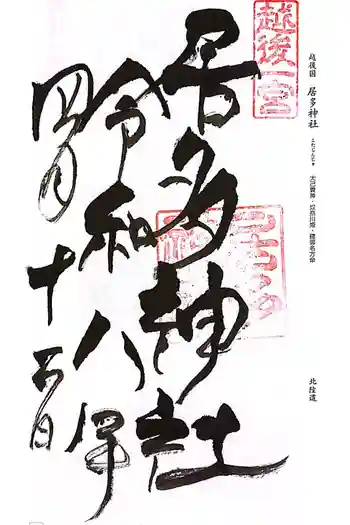 越後国 居多神社 こたじんじゃ 大己貴神・奴奈川姫・建御名方命 北陸道
越後一宮
居多神社
令和八年
四月十五日